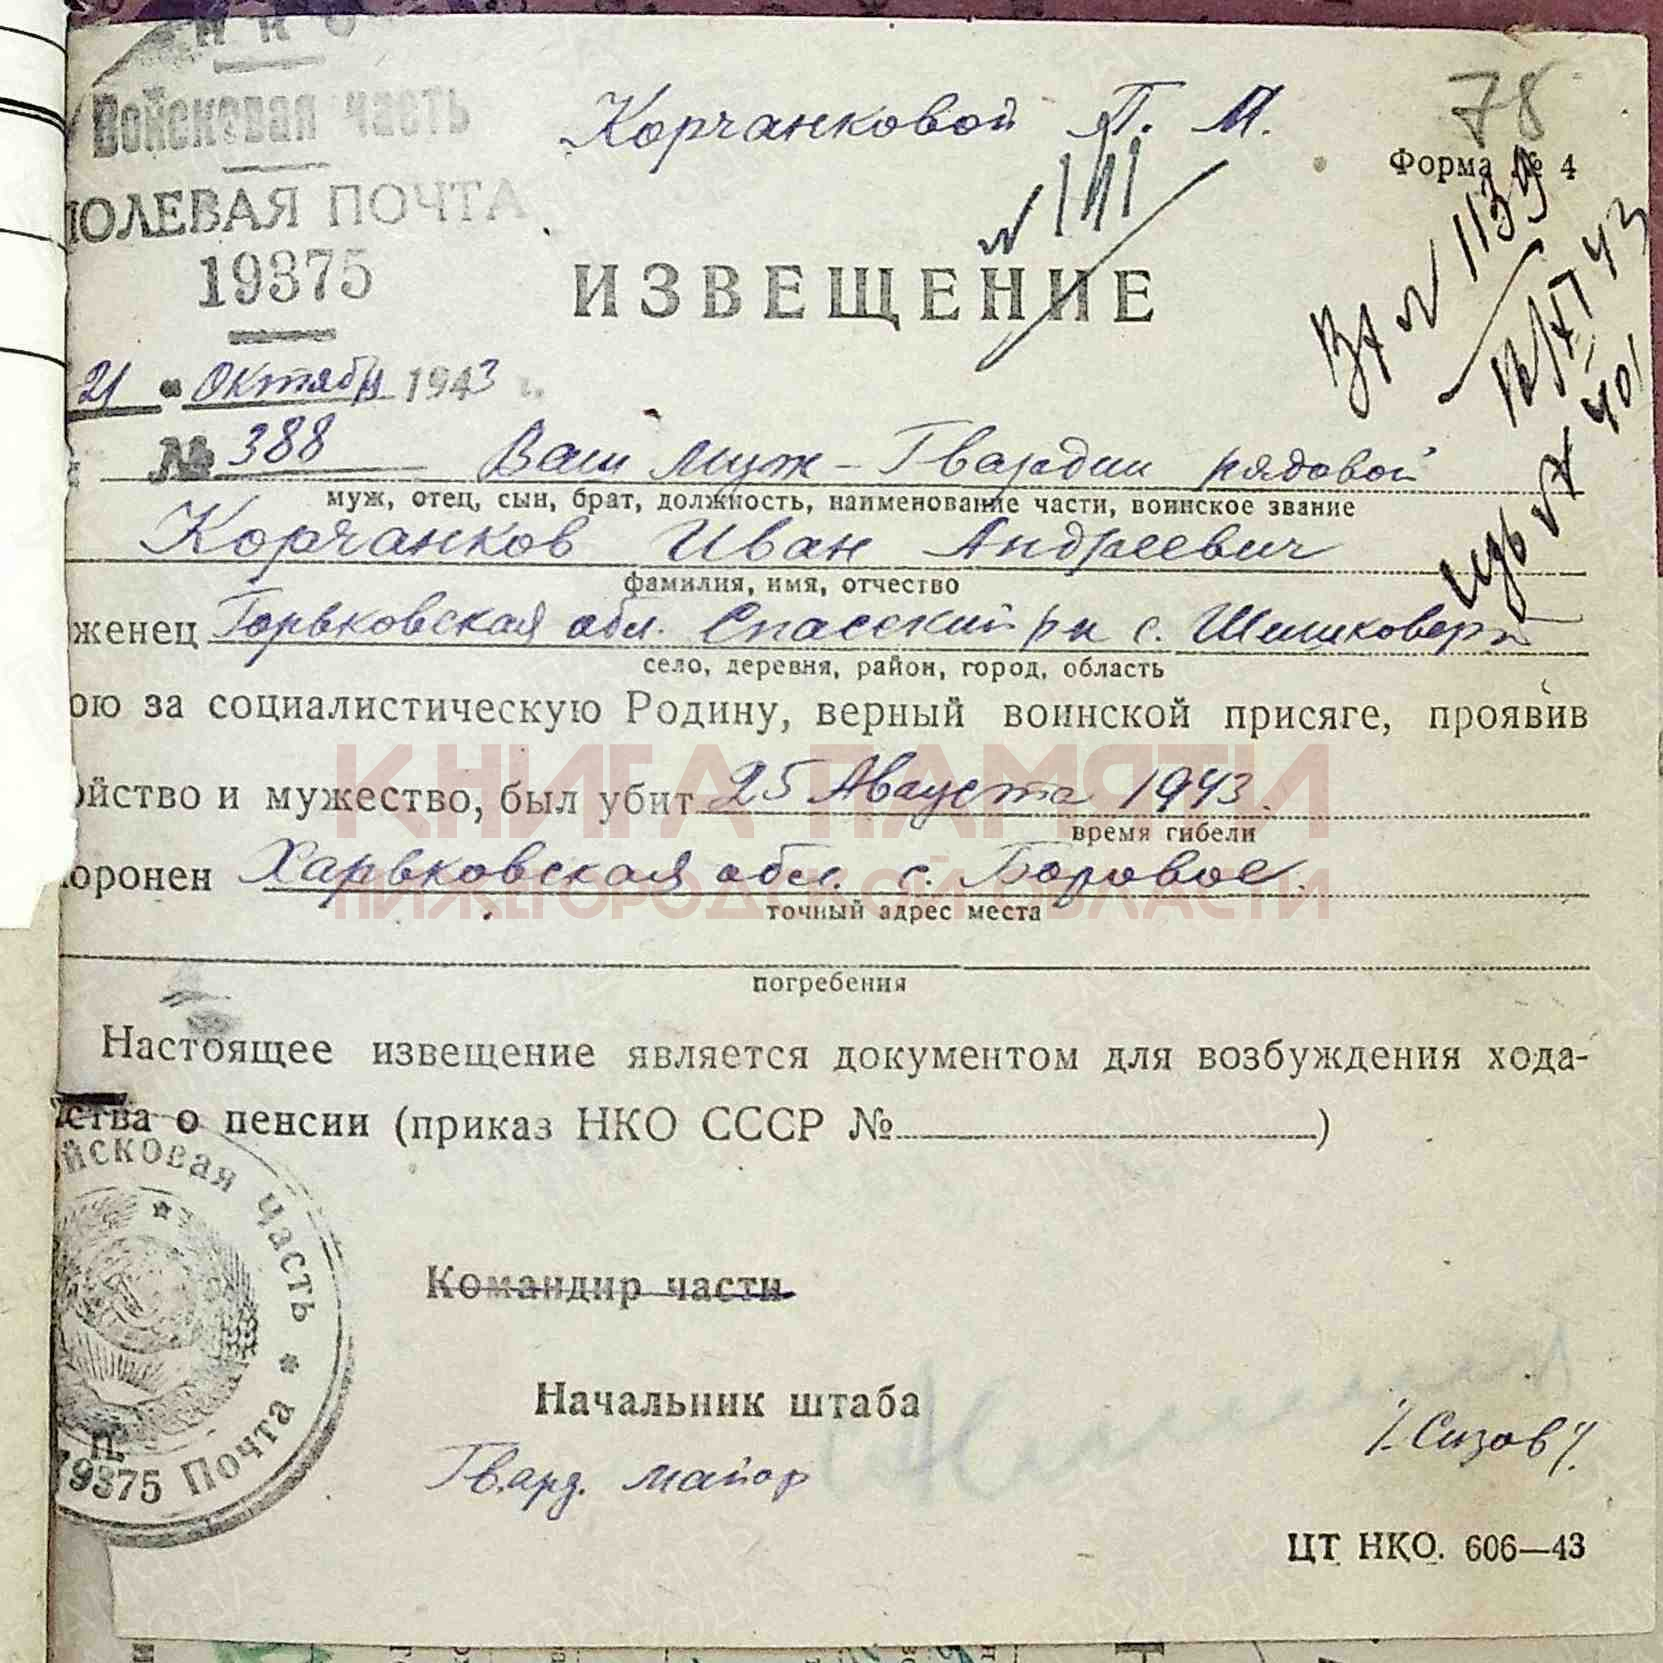 НКО
Войсковая часть
ПОЛЕВАЯ ПОЧТА
19375
Корчанковой П. М.
78
Форма № 4
№ 141
ИЗВЕЩЕНИЕ
Вх № 1139
12/XI 43
21 " Октября 1943 г.
№ 388 Ваш муж - Гвардии рядовой
муж, отец, сын, брат, должность, наименование части, воинское звание
Корчанков Иван Андреевич
фамилия, имя, отчество
женец Горьковская обл. Спасский р-н с.
село, деревня, район, город, область
ою за социалистическую Родину, верный воинской присяге, проявив
ойство и мужество, был убит 25 Августа 1943.
время гибели
оронен Харьковская обл. с. Боровое.
точный адрес места
погребения
КНИГА ПАМЯТИ
НИЖЕГОРОДСКОЙ ОБЛАСТИ
Настоящее извещение является документом для возбуждения хода-
ства о пенсии (приказ НКО СССР № )
йсковая часть * П. Почта 19375
Командир части
Начальник штаба
Гвард. майор
/. Сизов /.
ЦТ НКО. 606—43